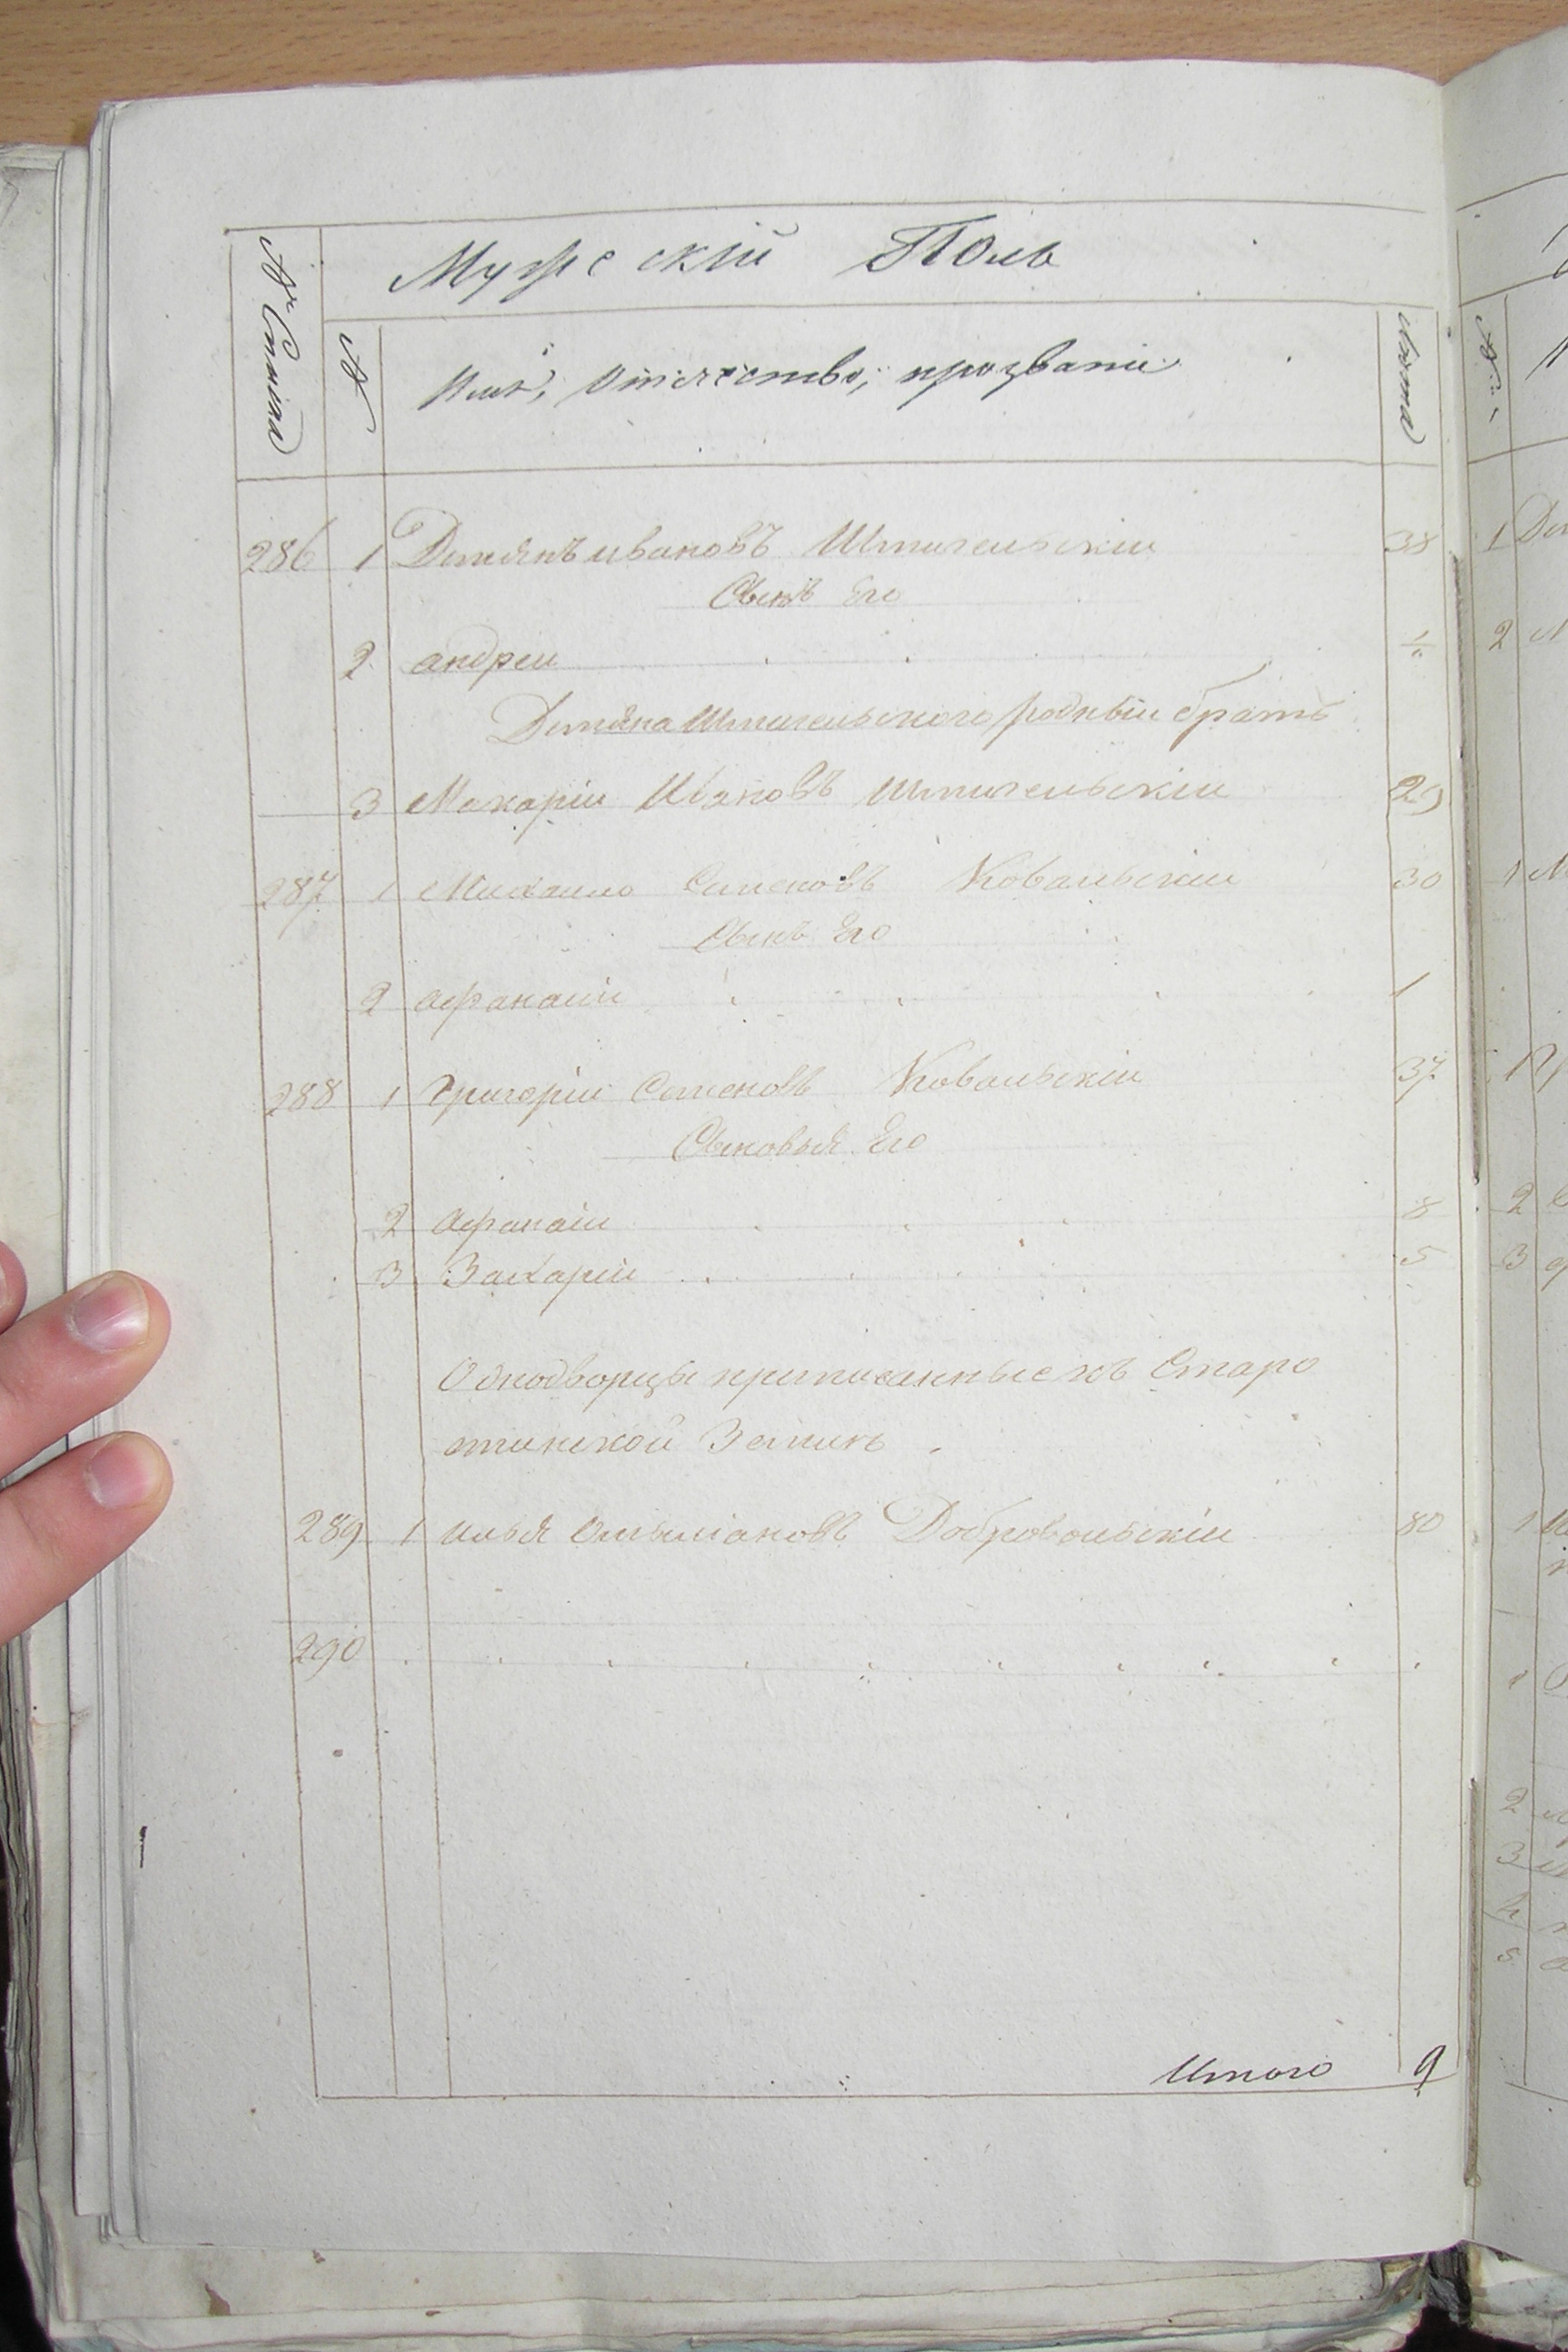 Мужескій Полъ
№ Семіи
№
Имя, Отечество, прозваніе
Лѣта
286 1 Демянъ ивановъ Шпигельскіи 38
Сынъ Его
2 андреи
Демяна Шпигельского родныи братъ
3 Макаріи Ивановъ Шпигельскіи 29
287 1 Михаило Семеновъ Ковальскіи 30
Сынъ Его
2 афанасіи 1
288 1 Григоріи Семеновъ Ковальскіи 37
Сыновья Его
2 Афанасіи 8
3 Захаріи 5
Однодворцы приписанные къ Старо
стинской Земли
289 1 илья Омельіановъ Добровольскіи 80
290
Итого 9